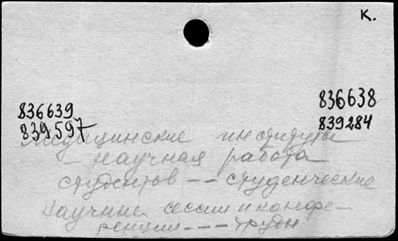 К.
836639 836638
839597 839284
Медицинские институты
научная работа
студентов -- студенческие
научные сессии и конфе-
ренции --- труды